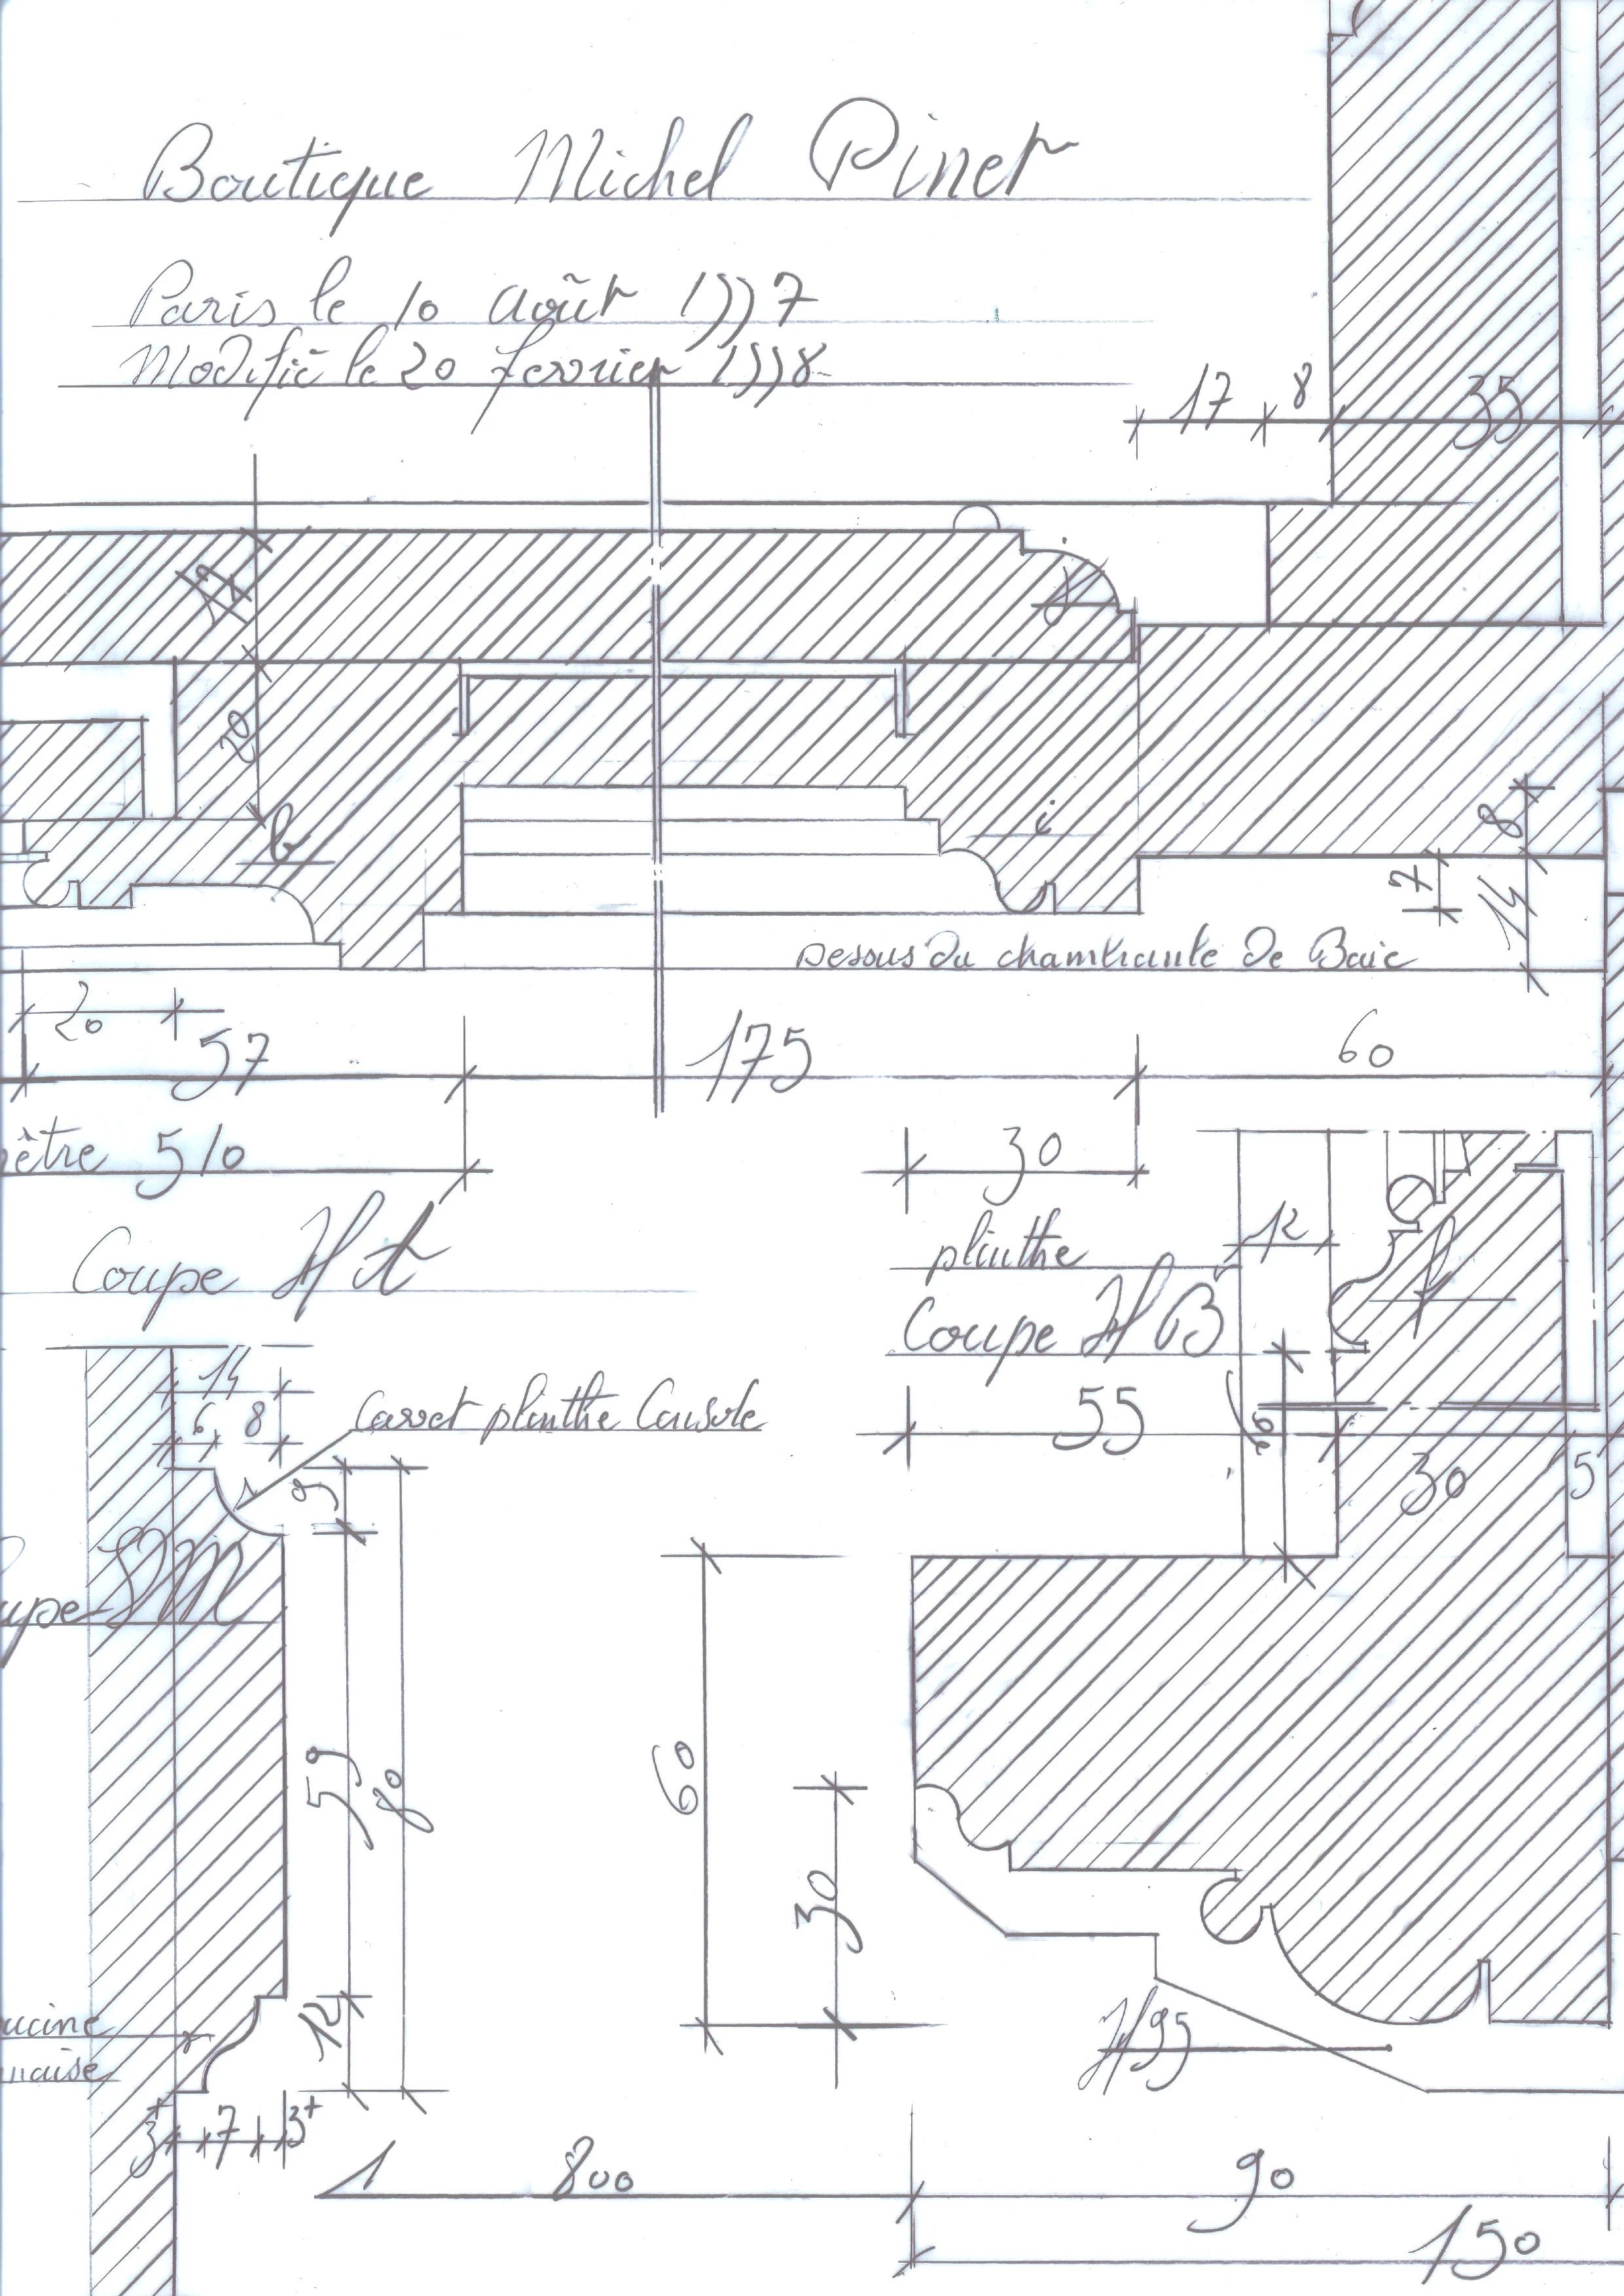 Boutique Michel Pinet
Paris le 10 Août 1997
Modifié le 20 fevrier 1998
17 8 35
17
j
20
b
i
8
7
14
Dessus du chambranle de Baie
20
57 175 60
être 510 30
Coupe H A
plinthe
12
f
Coupe H B
14
6 8
Cavet plinthe Console
55
30 5
9
upe M
59
80
60
30
12
ucine
naise
H 95
3+ 7 3+
1 800 90
150